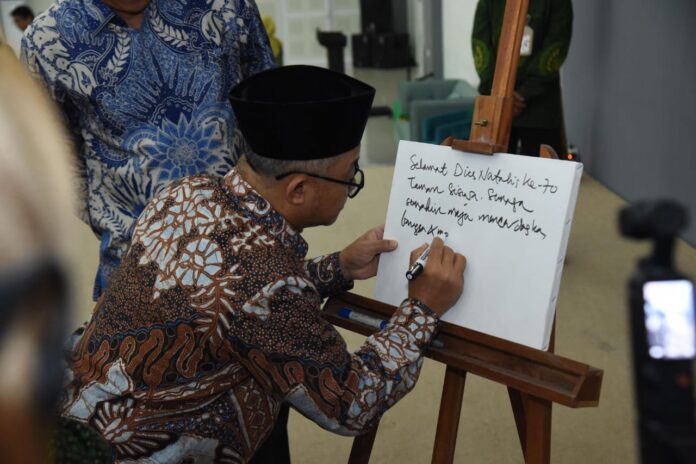 Selamat Dies Natalis Ke-70
Taman Siswa. Semoga
semakin maju mencerdaskan
bangsa